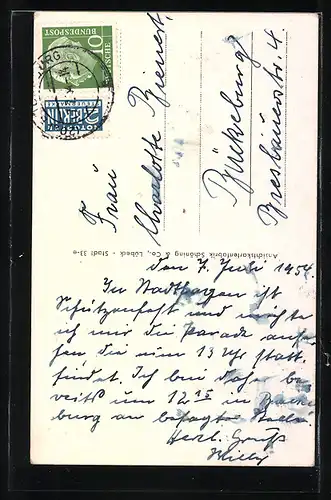 10
DEUTSCHE
BUNDESPOST
NOTOPFER
2 BERLIN
STEUERMARKE
Frau
Charlotte Bienert
Bückeburg
Breslauerstr. 4
Ansichtskartenfabrik Schöning & Co., Lübeck - Stadt 33-e
den 7. Juli 1954.
In Stadthagen ist
Schützenfest und möchte
ich mir die Parade anse-
hen die um 13 Uhr statt-
findet. Ich bin daher be-
reits um 12 in Bücke-
burg an besagter Stelle.
Herzl. Gruß
Willy